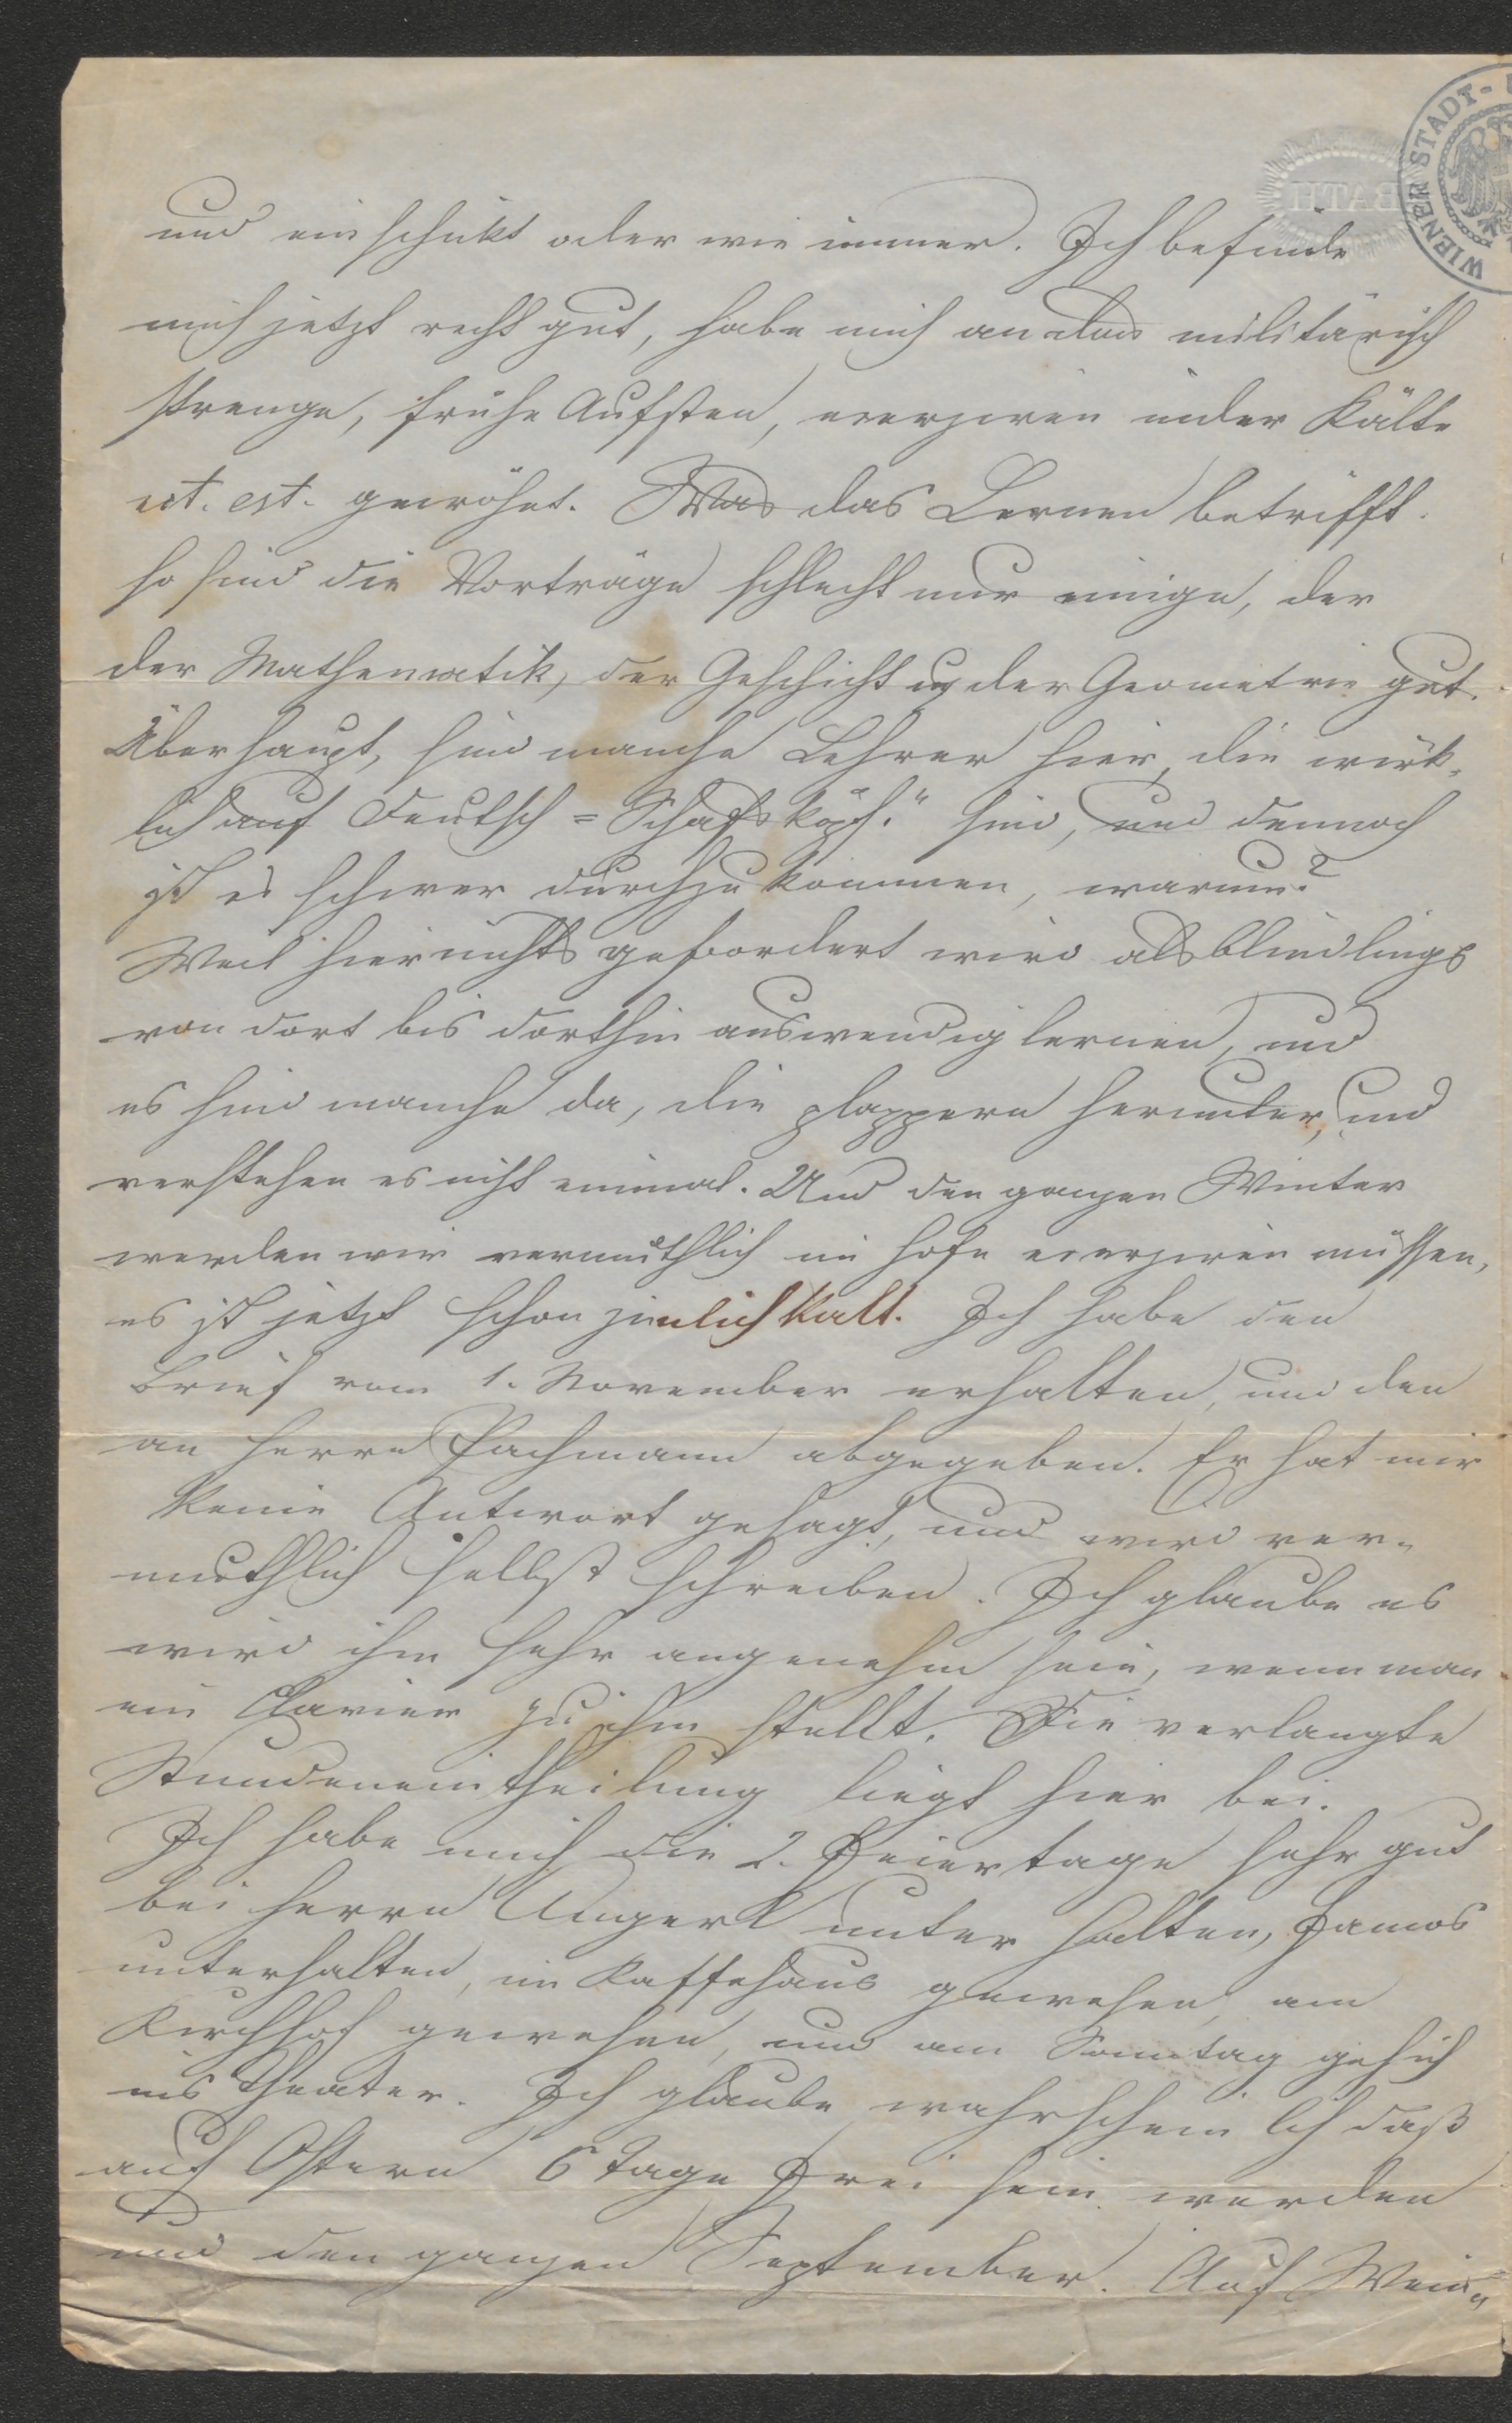 WIENER STADT-
BATH
und einschükt oder wie immer. Ich befinde
mich jetzt recht gut, habe mich an das militärisch
strenge, frühe Aufsten, exerziren inder Kälte
ect. est. gewöhnt. Was das Lernen betrifft.
so sind die Vorträge schlecht nur einige, der
der Mathematik, der Geschicht u der Geometrie gut.
Überhaupt, sind manche Lehrer hier, die wirk-
lich auf Deutsch = Schafsköpf." sind, und dennoch
ist es schwer durchzukommen, warum?
Weil hier nichts gefordert wird als blindlings
von dort bis dorthin auswendig lernen, und
es sind manche da, die plappern herunter, und
verstehen es nicht einmal. Und den ganzen Winter
werden wir vermuthlich im Hofe exerziren müssen,
es ist jetzt schon zimlich kalt. Ich habe den
Brief vom 1. November erhalten, und den
an Herrn Pachmann abgegeben. Er hat mir
keine Antwort gesagt, und wird ver-
muthlich selbst schreiben. Ich glaube es
wird ihm sehr angenehm sein, wenn man
ein Clavier zu ihm stellt. Die verlangte
Stundeneintheilung liegt hier bei.
Ich habe mich die 2. Feiertage sehr gut
bei Herrn Angerl unter halten, Famos
unterhalten, im Kaffehaus gewesen, am
Kirchhof gewesen, und am Sonntag geh ich
ins Theater. Ich glaube wahrscheinlich daß
auf Ostern 6 Tage Frei sein werden
und den ganzen September. Auf Wein-